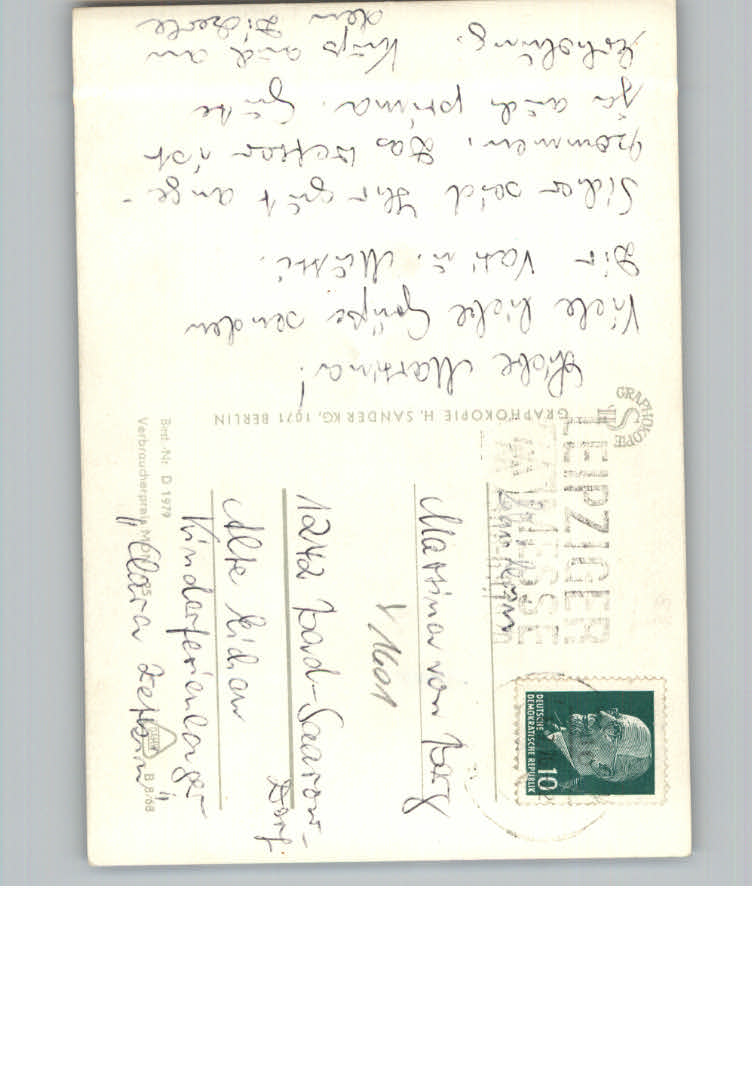 Liebe Martina!
Viele liebe Grüße senden
Dir Vati u. Mutti.
Sicher seid Ihr gut ange-
kommen. Das Wetter ist
ja auch prima. Gute
Erholung. Kuß auch an
den
GRAPHOKOPIE H. SANDER KG, 1071 BERLIN
GRAPHOKOPIE
HS
LEIPZIGER
MESSE
DEUTSCHE
DEMOKRATISCHE REPUBLIK
10
Martina von
1242 Bad-Saarow-
Dorf
Alte Eichen
Kinderferienlager
"Clara Zetkin"
Best.-Nr. D 1979
Verbraucherpreis MDN
B 8/68